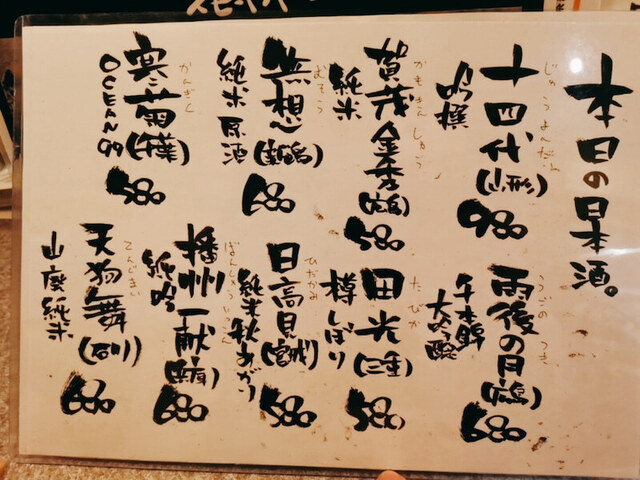 本日の日本酒。
じゅうよんだい
十四代(山形)
吟撰
980
かもきんしゅう
賀茂金秀(広島)
純米
580
むそう
無想〜(新潟)
純米原酒
680
かんぎく
寒菊(千葉)
OCEAN99
580
うごのつき
雨後の月(広島)
千本錦
大吟醸
680
たびか
田光(三重)
樽しぼり
580
ひたかみ
日高見(宮城)
純米秋あがり
580
ばんしゅういっこん
播州一献(兵庫)
純吟
680
てんぐまい
天狗舞(石川)
山廃純米
680